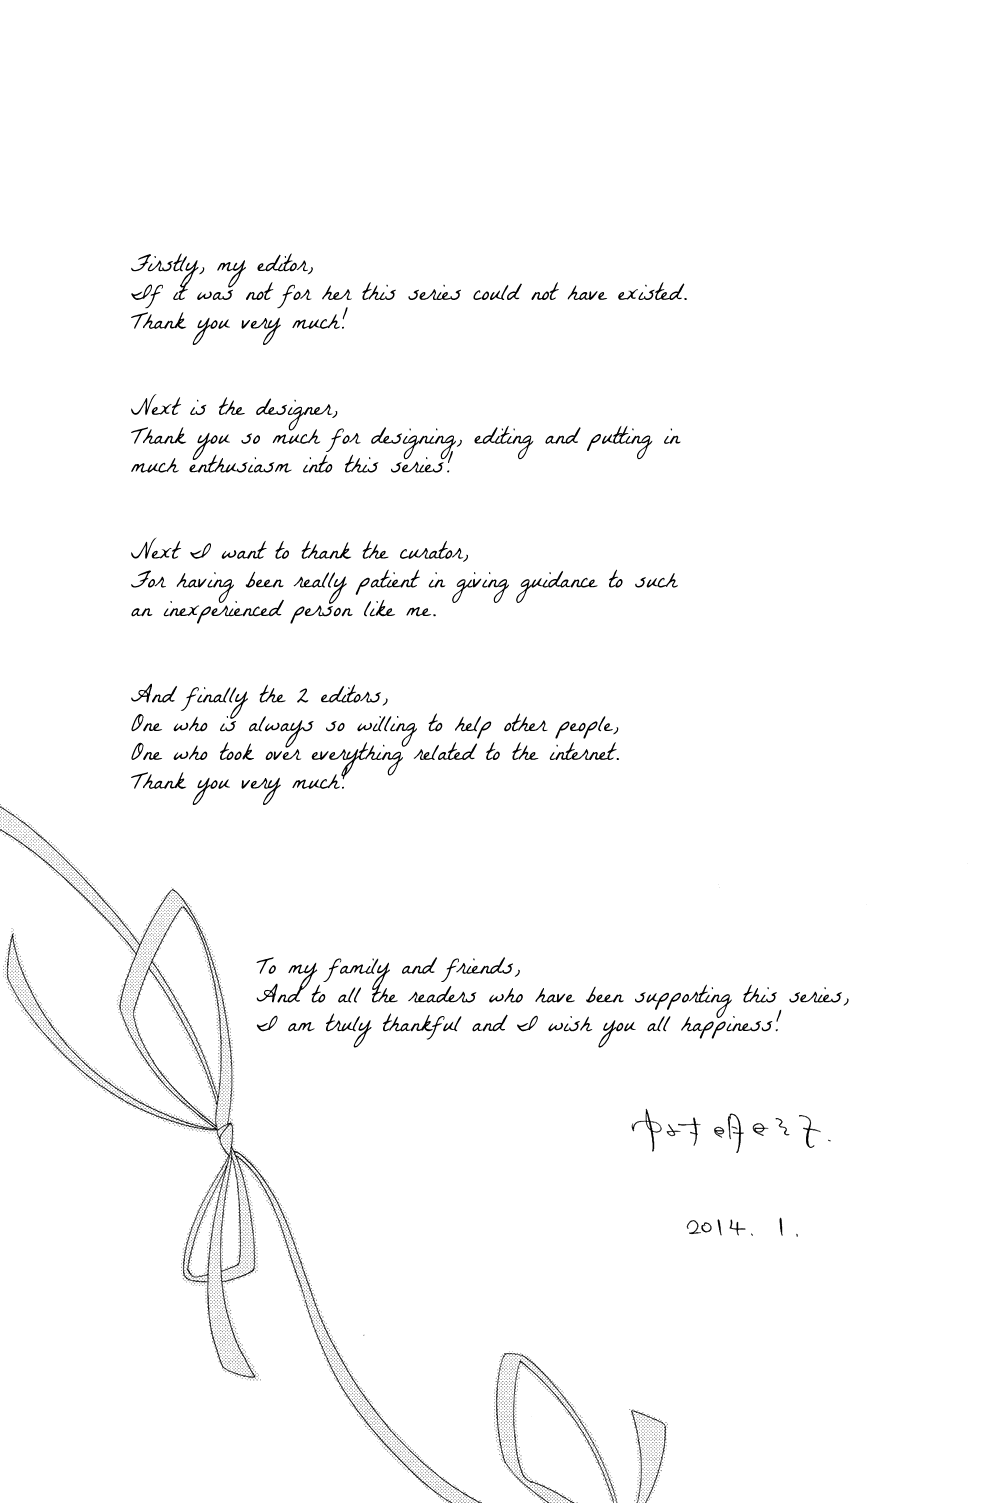 Firstly, my editor,
If it was not for her this series could not have existed.
Thank you very much!
Next is the designer,
Thank you so much for designing, editing and putting in
much enthusiasm into this series!
Next I want to thank the curator,
For having been really patient in giving guidance to such
an inexperienced person like me.
And finally the 2 editors,
One who is always so willing to help other people,
One who took over everything related to the internet.
Thank you very much!
To my family and friends,
And to all the readers who have been supporting this series,
I am truly thankful and I wish you all happiness!
2014. 1.